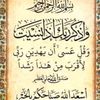 بسم الله الرحمن الرحيم
وَاذْكُر رَّبَّكَ إِذَا نَسِيتَ
وَقُلْ عَسَى أَن يَهْدِيَنِ رَبِّي
لِأَقْرَبَ مِنْ هَذَا رَشَدًا
أسعد الله صباحكم